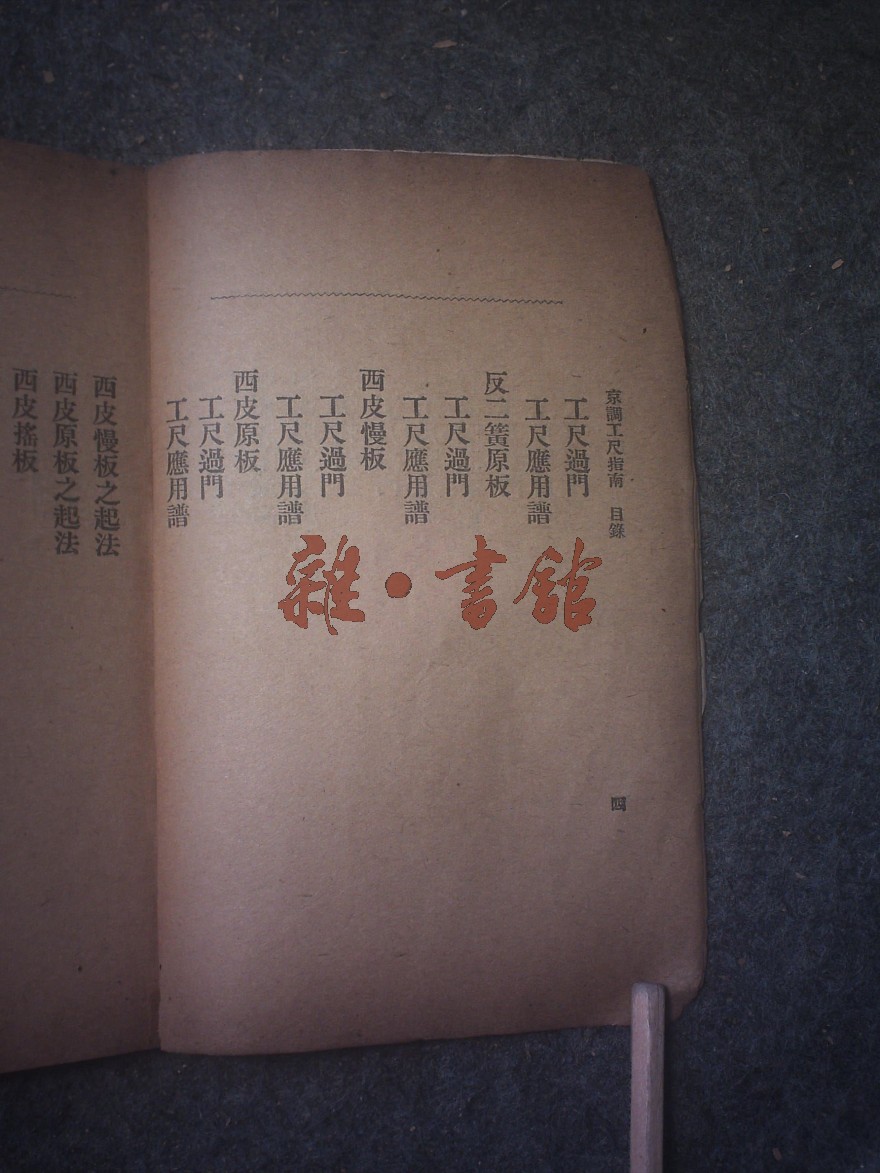 京調工尺指南　目錄
工尺過門
工尺應用譜
反二簧原板
工尺過門
工尺應用譜
西皮慢板
工尺過門
工尺應用譜
西皮原板
工尺過門
工尺應用譜
四
西皮慢板之起法
西皮原板之起法
西皮搖板
雜·書館